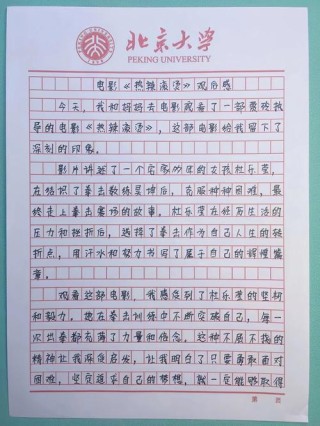 北京大学
PEKING UNIVERSITY
电影《热辣滚烫》观后感
今天，我和妈妈去电影院看了一部贾玲执
导的电影《热辣滚烫》，这部电影给我留下了
深刻的印象。
影片讲述了一个宅家多年的女孩杜乐莹，
在结识了拳击教练昊坤后，克服种种困难，最
终走上拳击赛场的故事。杜乐莹在经历生活的
压力和挫折后，选择了拳击作为自己人生的转
折点，用汗水和努力书写了属于自己的辉煌篇
章。
观看这部电影，我感受到了杜乐莹的坚韧
和毅力。她在拳击训练中不断突破自己，每一
次出拳都充满了力量和信念。这种不屈不挠的
精神让我深受启发，让我明白了只要勇敢面对
困难，坚定追求自己的梦想，就一定能够取得